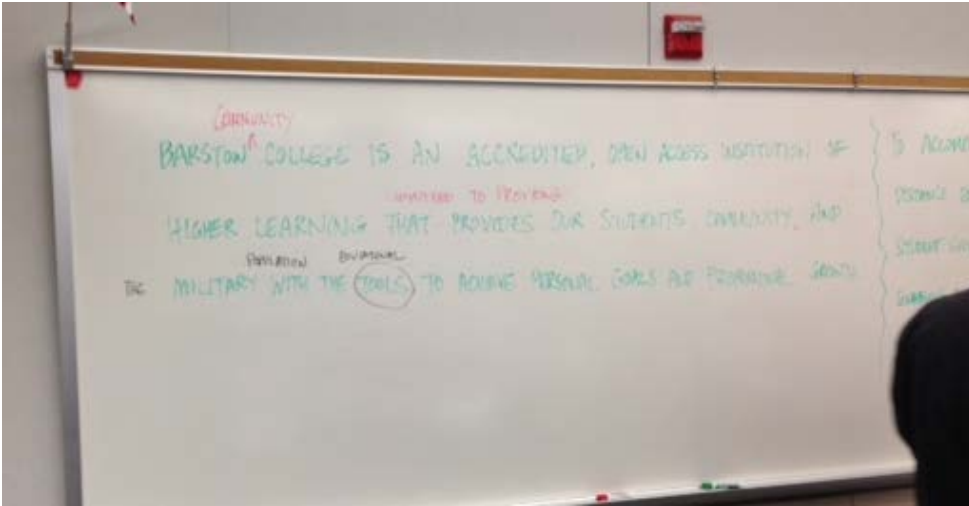 COMMUNITY
BARSTOW ^ COLLEGE IS AN ACCREDITED, OPEN ACCESS INSTITUTION OF
TO PROVIDING
HIGHER LEARNING THAT PROVIDES OUR STUDENTS, COMMUNITY, AND
POPULATION EDUCATIONAL
THE MILITARY WITH THE TOOLS TO ACHIEVE PERSONAL GOALS AND GROWTH
STUDENT